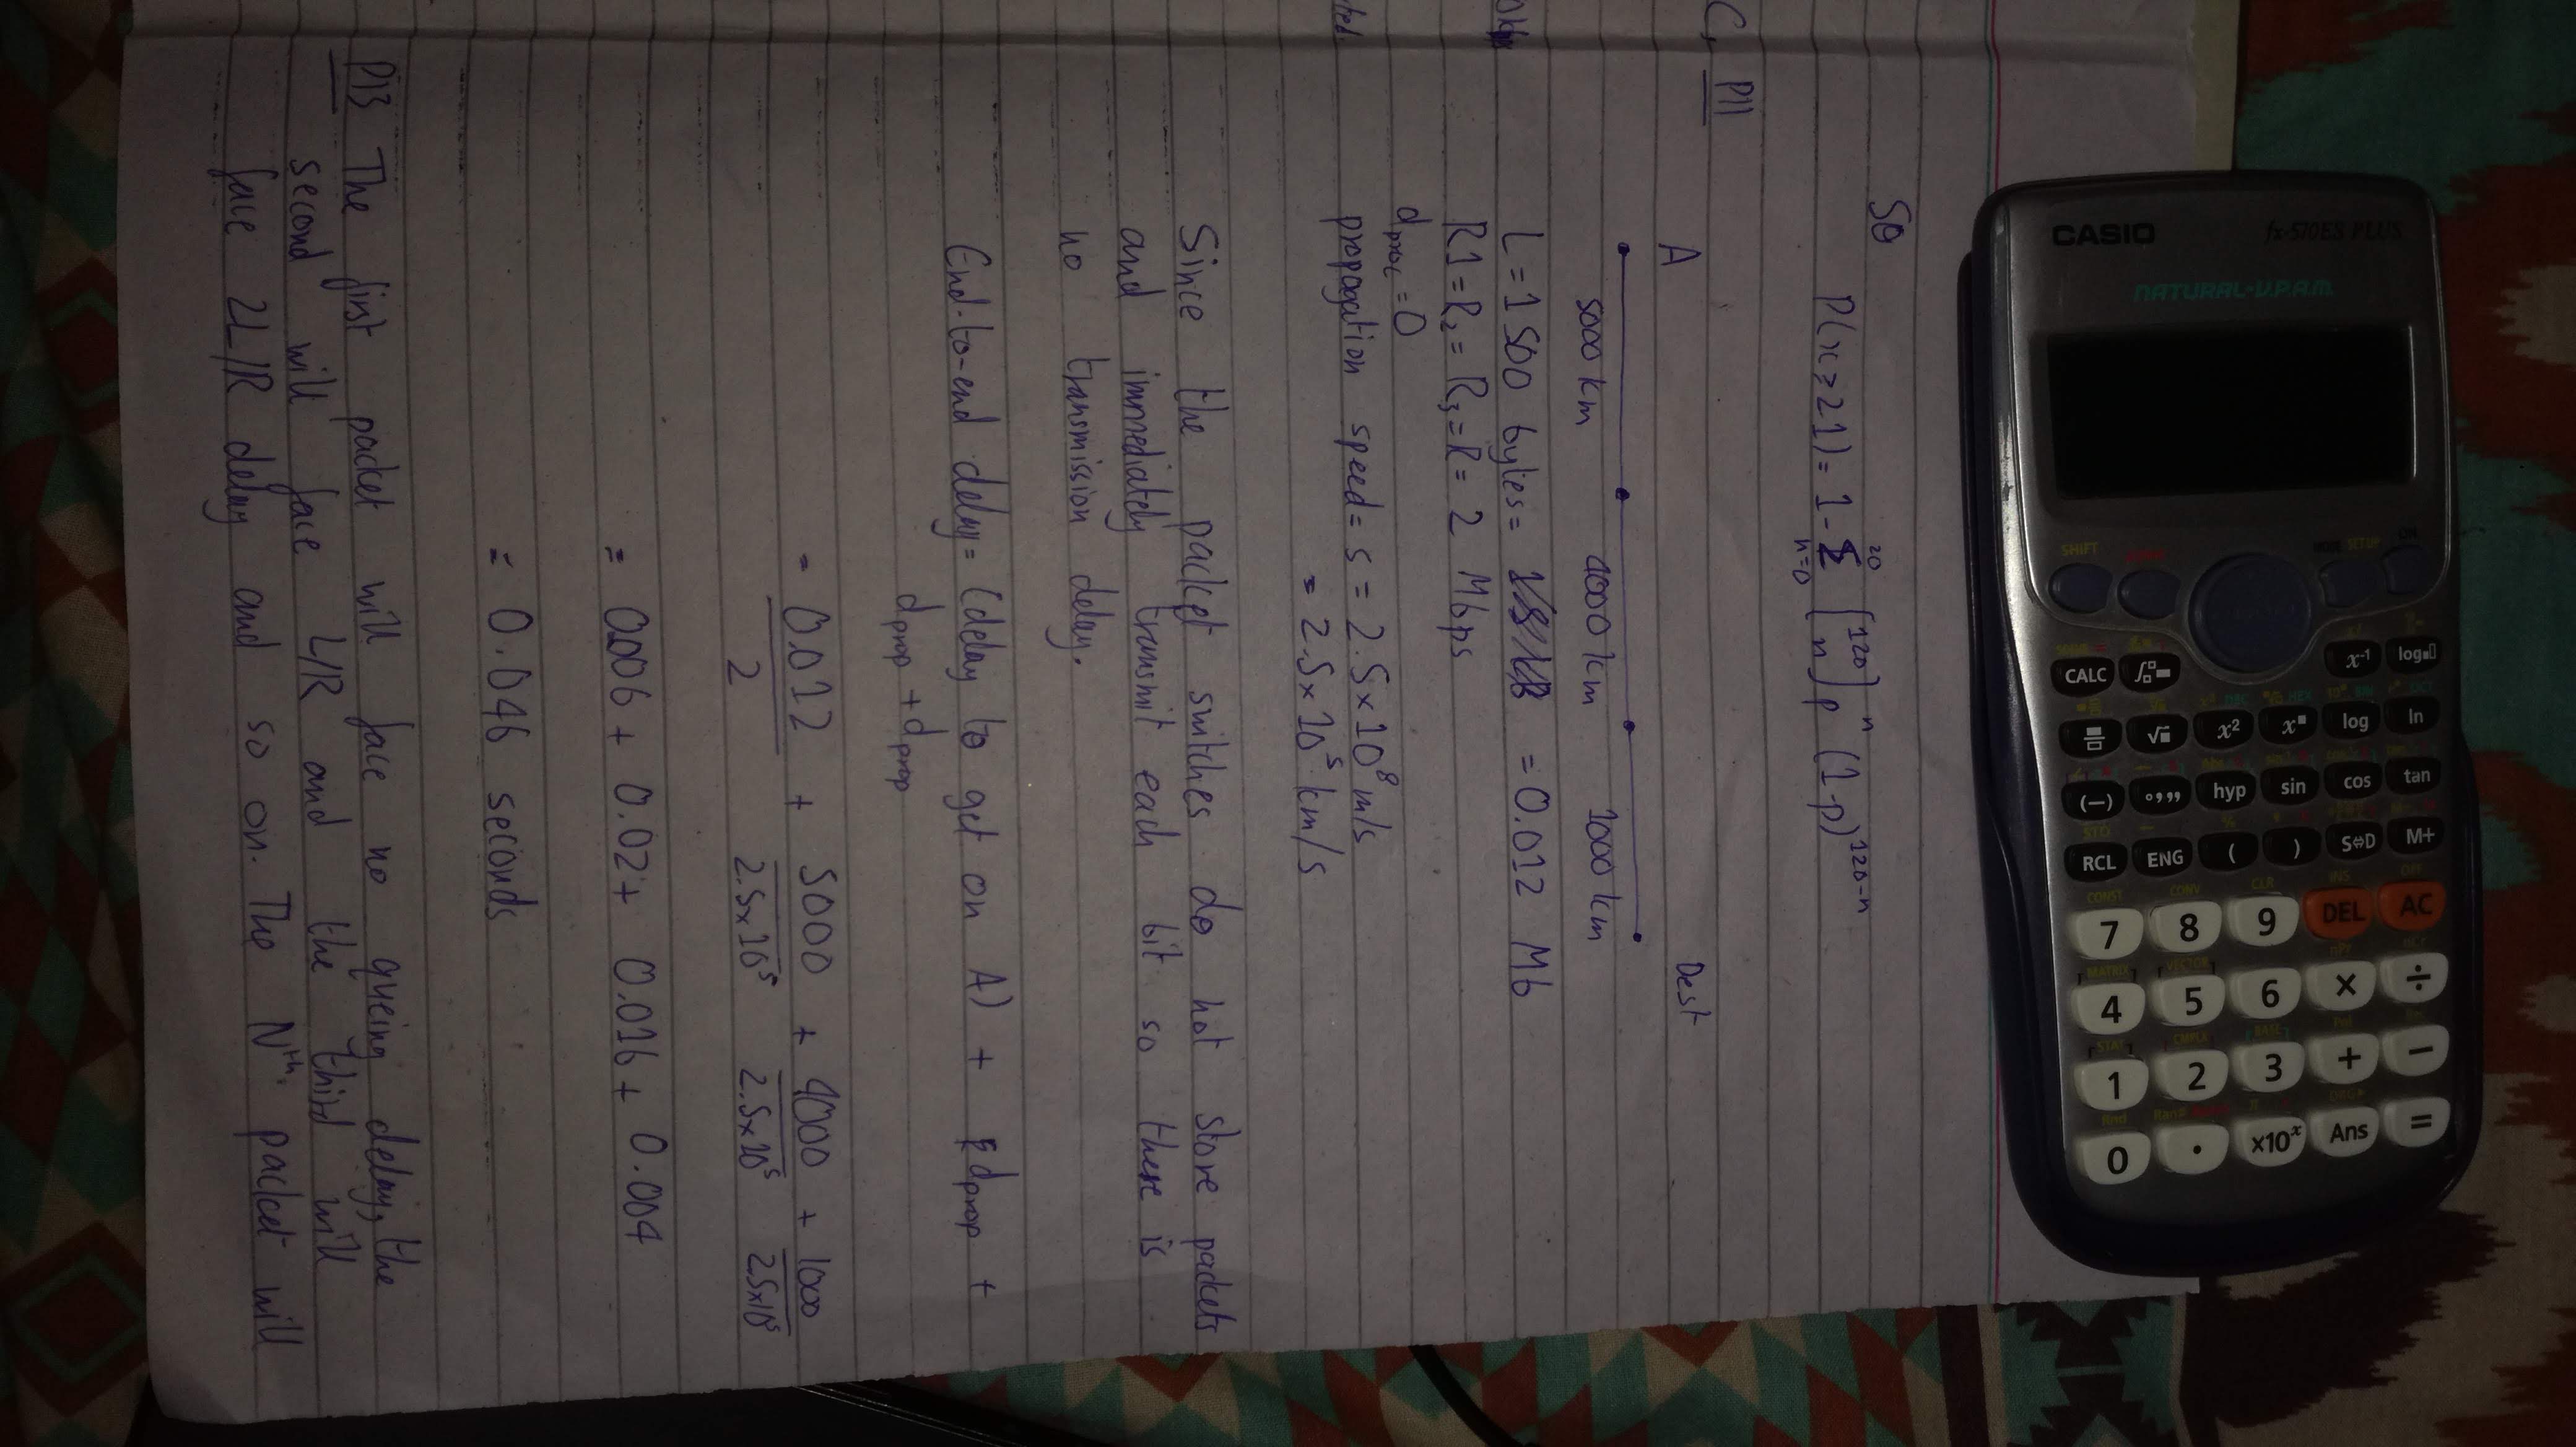 CASIO
fx-570ES PLUS
NATURAL-V.P.A.M.
SHIFT
ON
CALC
∫
x⁻¹
log
√
x²
x
log
ln
(−)
° , ,,
hyp
sin
cos
tan
RCL
ENG
(
)
S⇔D
M+
7
8
9
DEL
AC
4
5
6
×
÷
1
2
3
+
−
0
.
×10ˣ
Ans
=
SO
P(x≥21) = 1-Σ [120 n] pⁿ (1-p)¹²⁰⁻ⁿ
20
n=0
C, P11
A Dest
5000 km 4000 km 1000 km
L = 1500 bytes = = 0.012 Mb
R1 = R₂ = R₃ = R = 2 Mbps
dproc = 0
propagation speed = s = 2.5×10⁸ m/s
= 2.5×10⁵ km/s
Since the packet switches do not store packets
and immediately transmit each bit so there is
no transmission delay.
End-to-end delay = (delay to get on A) + dprop +
dprop + dprop
= 0.012/2 + 5000/2.5×10⁵ + 4000/2.5×10⁵ + 1000/2.5×10⁵
= 0.006 + 0.02 + 0.016 + 0.004
= 0.046 seconds
P13 The first packet will face no queing delay, the
second will face L/R and the third will
face 2L/R delay and so on. The Nᵗʰ packet will